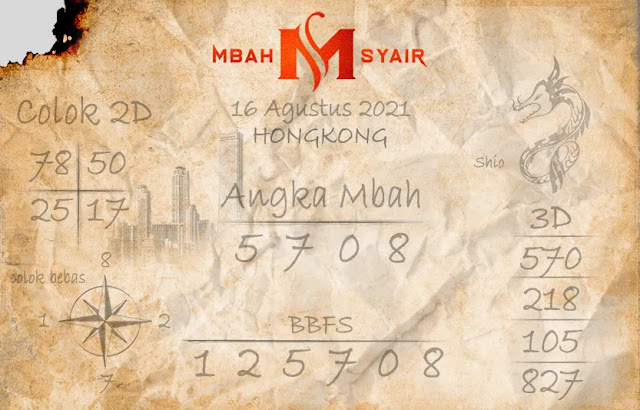 MBAH M SYAIR
Colok 2D
78 50
25 17
16 Agustus 2021
HONGKONG
Shio
Angka Mbah
5 7 0 8
3D
570
218
105
827
colok bebas
8
1 2
7
BBFS
1 2 5 7 0 8